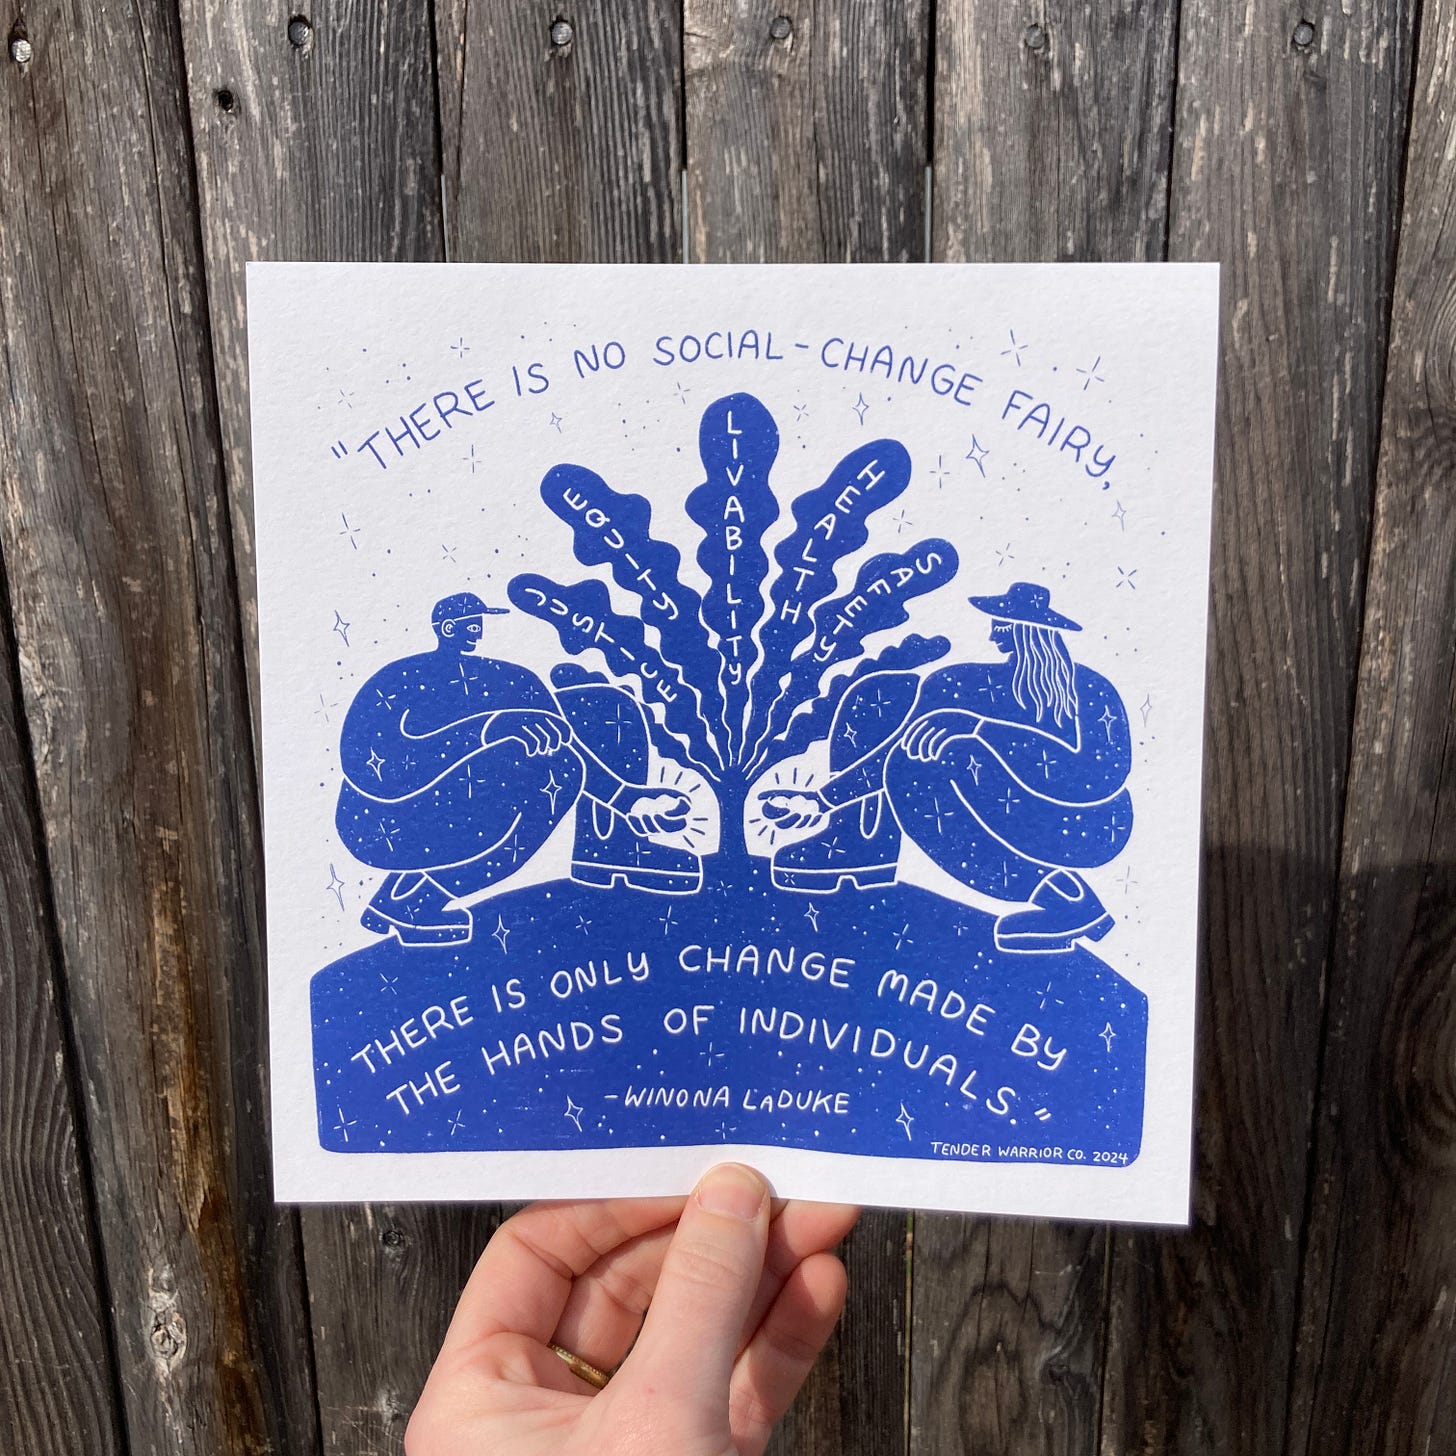 "THERE IS NO SOCIAL-CHANGE FAIRY,
JUSTICE
EQUITY
LIVABILITY
HEALTH
SAFETY
THERE IS ONLY CHANGE MADE BY
THE HANDS OF INDIVIDUALS."
-WINONA LADUKE
TENDER WARRIOR CO. 2024